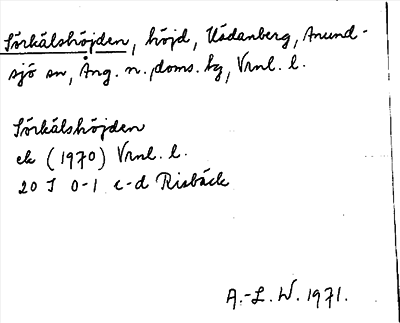 Sörkälshöjden, höjd, Uddanberg, Anund-
sjö sn, Ång. n. doms. tg, Vrnl. l.
Sörkälshöjden
ek (1970) Vrnl. l.
20 I 0-1 c-d Risbäck
A.-L. W. 1971.